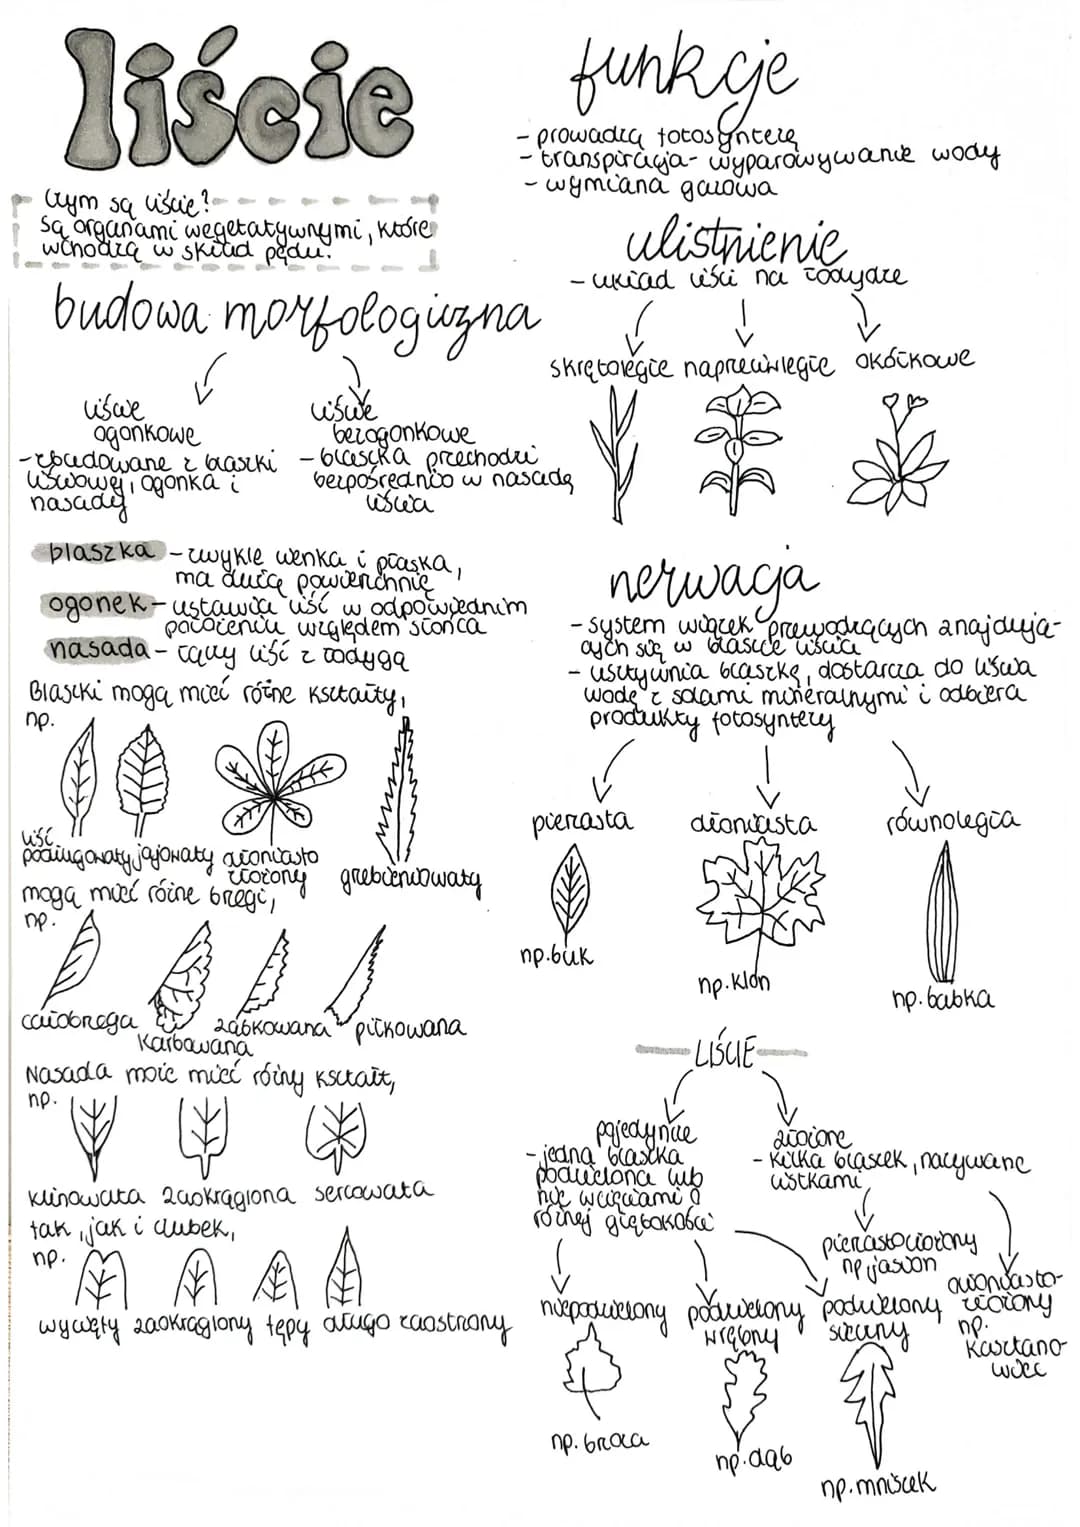 liście
Czym są liście?
są organami wegetatywnymi, które
wchodzą w skład pędu.
budowa morfologiczna
liście
ogonkowe
- zbudowane z blaszki
liściowej, ogonka i
nasady
liście
bezogonkowe
- blaszka przechodzi
bezpośrednio w nasadę
liścia
blaszka - zwykle cienka i płaska,
ma dużą powierzchnię
ogonek - ustawia liść w odpowiednim
położeniu względem słońca
nasada - łączy liść z łodygą
Blaszki mogą mieć różne kształty,
np.
liść
podługowaty jajowaty dłoniasto
złożony grzebieniowaty
mogą mieć różne brzegi,
np.
całobrzega
karbowana
ząbkowana piłkowana
Nasada może mieć różny kształt,
np.
klinowata zaokrąglona sercowata
tak, jak i czubek,
np.
wycięty zaokrąglony tępy długo zaostrzony
funkcje
- prowadzą fotosyntezę
- transpiracja - wyparowywanie wody
- wymiana gazowa
ulistnienie
- układ liści na łodydze
skrętoległe naprzeciwległe okółkowe
nerwacja
- system wiązek przewodzących znajdują-
cych się w blaszce liścia
- usztywnia blaszkę, dostarcza do liścia
wodę z solami mineralnymi i odbiera
produkty fotosyntezy
pierzasta dłoniasta równoległa
np. buk
np. klon
np. babka
LIŚCIE
pojedyncze
- jedna blaszka
podzielona lub
nie wcięciami o
różnej głębokości
złożone
- kilka blaszek, nazywane
listkami
pierzastozłożony
np jesion
dłoniasto-
złożony
np.
kasztano-
wiec
niepodzielony
podzielony
wrębny
podzielony
sieczny
np. brzoza
np. dąb
np. mniszek